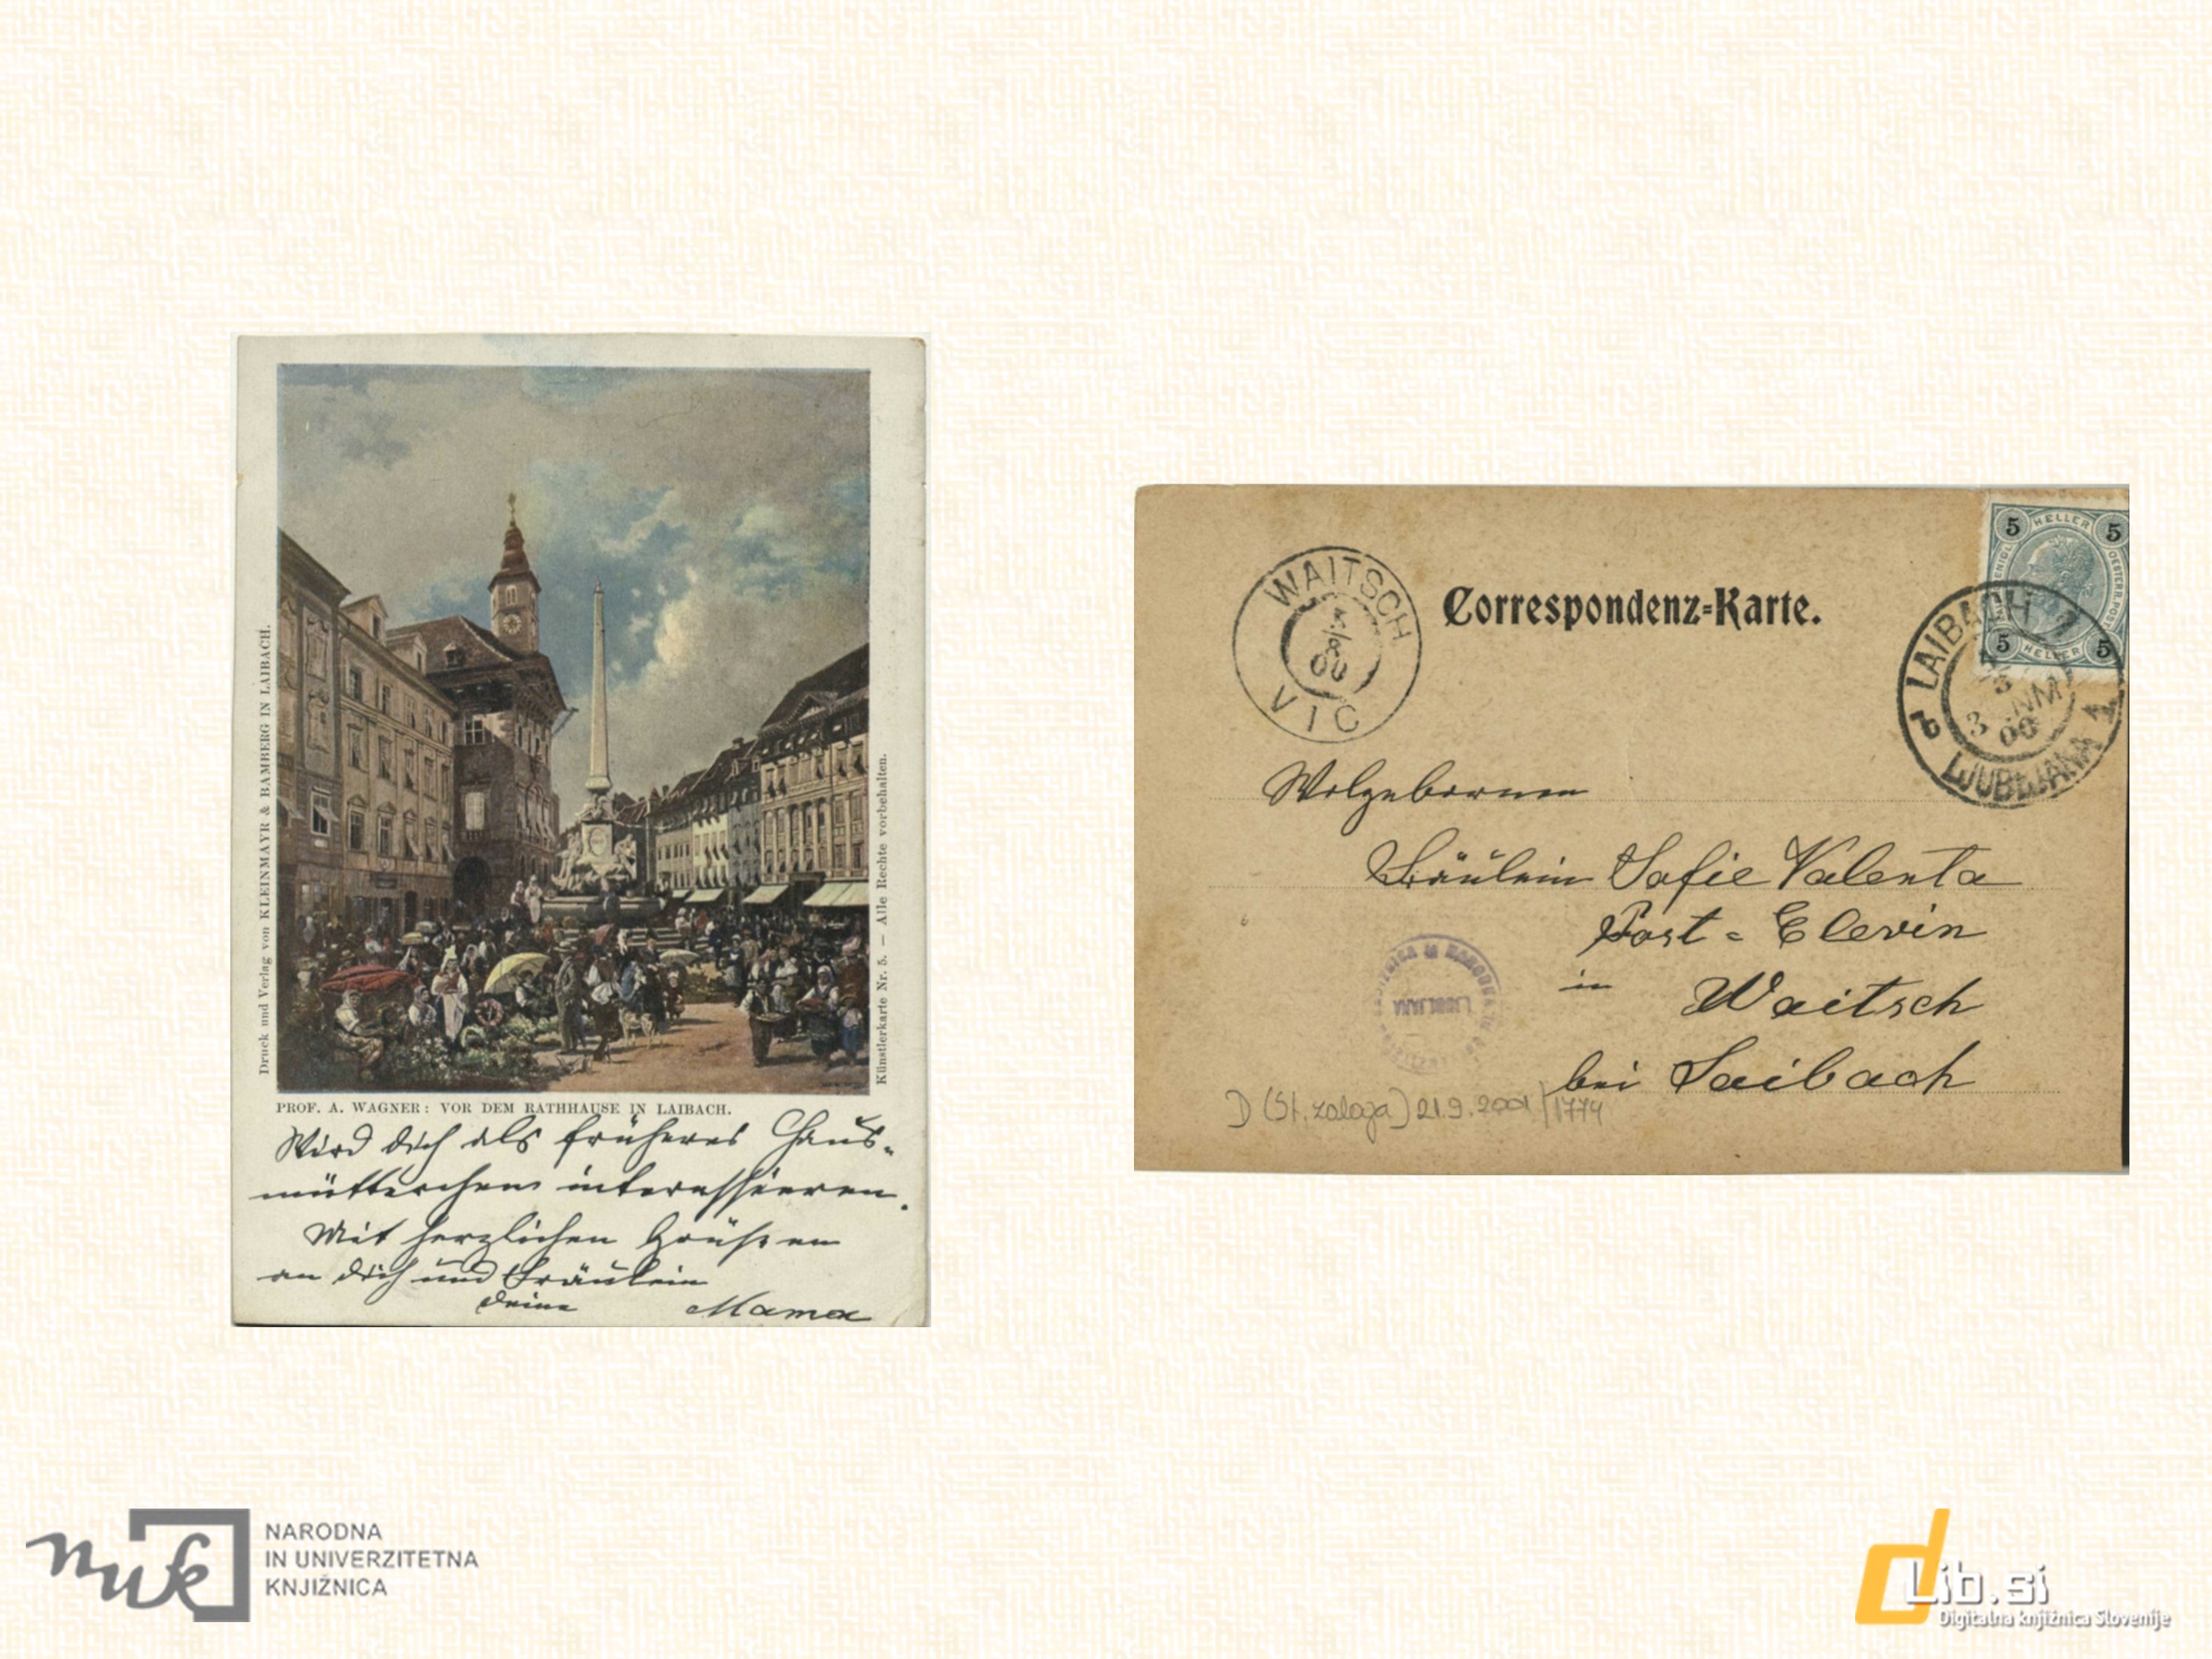 Druck und Verlag von KLEINMAYR & BAMBERG IN LAIBACH.
Künstlerkarte Nr. 5. — Alle Rechte vorbehalten.
PROF. A. WAGNER: VOR DEM RATHHAUSE IN LAIBACH.
Wird dich als früheres Haus-
mütterchen interessieren.
Mit herzlichen Grüßen
an dich und Fräulein
deine Mama
WAITSCH
4/8
00
VIC
Correspondenz-Karte.
5 HELLER 5
5 HELLER 5
LAIBACH 1
3 NM
00
LJUBLJANA 1
b
Wolgebornen
Fräulein Sofie Valenta
Post-Elevin
in Waitsch
bei Laibach
LJUBLJANA
D (St. zaloga) 21.9.2001/1774
nuk
NARODNA
IN UNIVERZITETNA
KNJIŽNICA
dLib.si
Digitalna knjižnica Slovenije